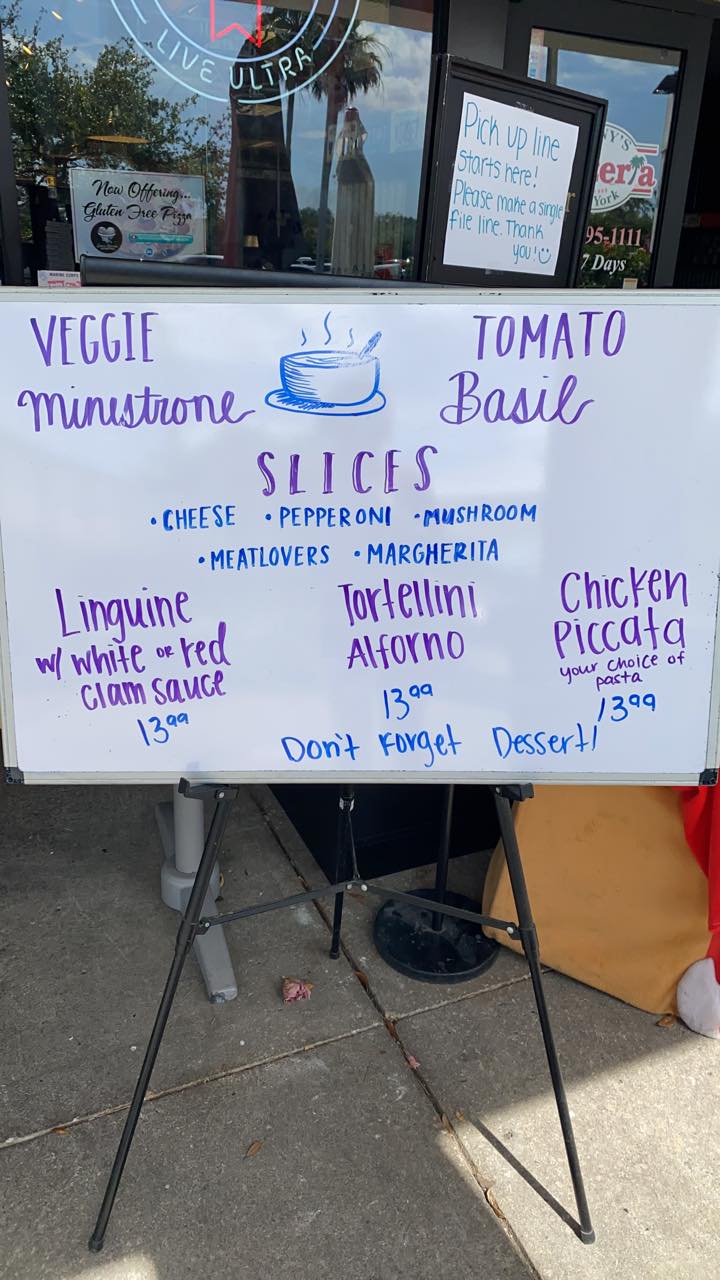 LIVE ULTRA
Now Offering...
Gluten Free Pizza
Pick up line
starts here!
Please make a single
file line. Thank
you!
Y'S
eria
York
95-1111
7 Days
VEGGIE
Minestrone
TOMATO
Basil
SLICES
• CHEESE • PEPPERONI • MUSHROOM
• MEATLOVERS • MARGHERITA
Linguine
w/ white or red
clam sauce
13.99
Tortellini
Alforno
13.99
Chicken
Piccata
your choice of
pasta
13.99
Don't Forget Dessert!